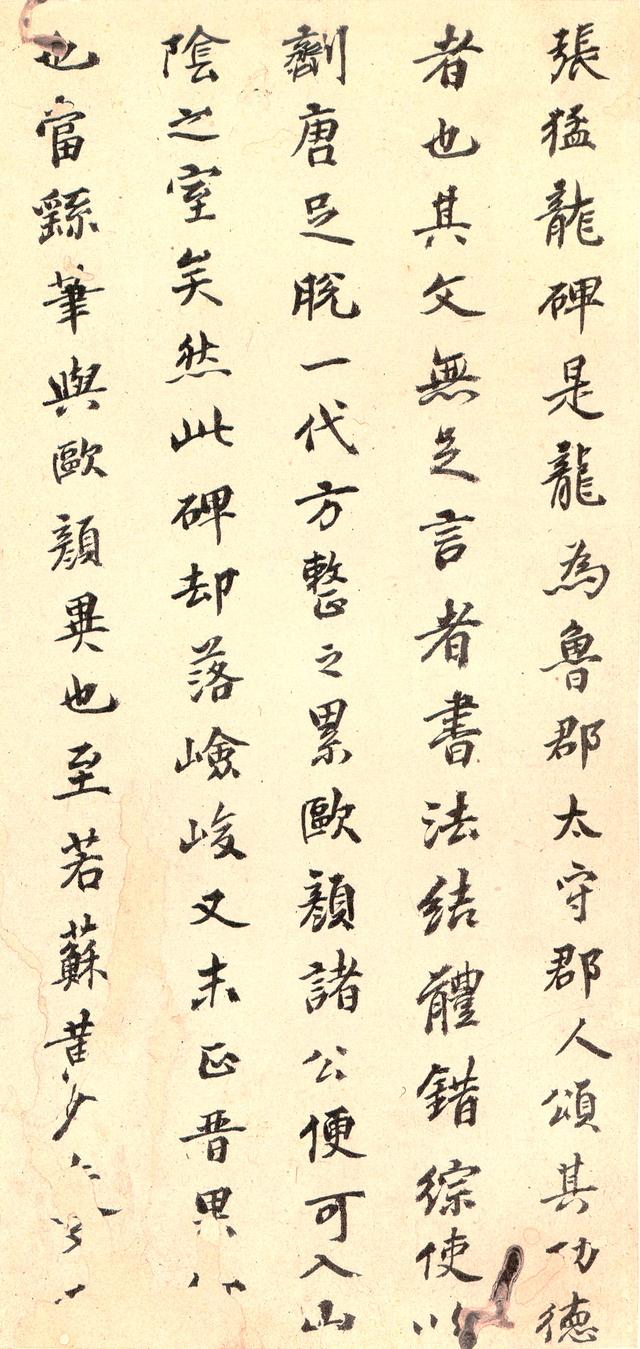 張猛龍碑是龍為魯郡太守郡人頌其功德
者也其文無足言者書法結體錯綜使
劑唐足脫一代方整之累歐顏諸公便可入山
陰之室矣然此碑却落嶮峻又未正晉果
也當繇筆與歐顏異也至若蘇黃